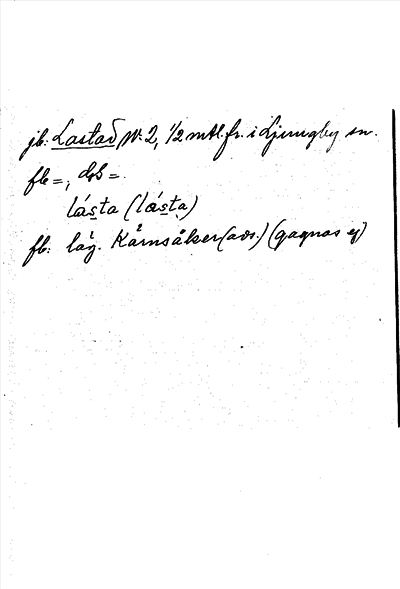 jb: Lastad N:2, 1/2 mtl. fr. i Ljungby sn.
fb =, dgb =
låsta (låsta)
fb: låg. Kårnsåker (avs.) (gagnas ej)